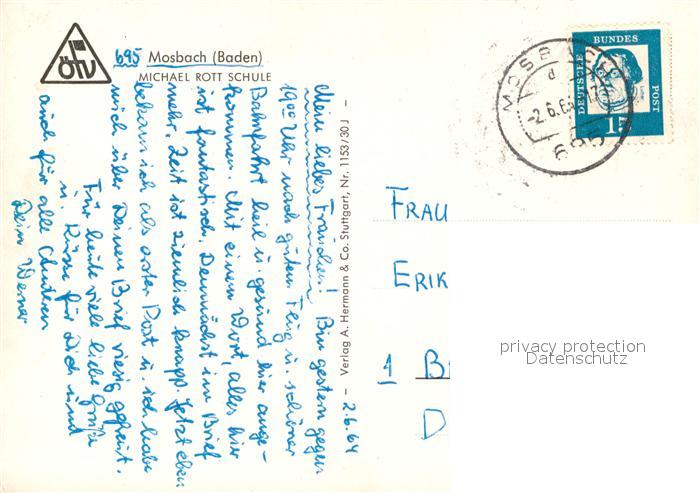 ÖTV
695 Mosbach (Baden)
MICHAEL ROTT SCHULE
Mein liebes Frauchen! Bin gestern gegen
19°° Uhr nach gutem Flug u. schöner
Bahnfahrt heil u. gesund hier ange-
kommen. Mit einem Wort, alles hier
ist fantastisch. Demnächst im Brief
mehr. Zeit ist ziemlich knapp. Jetzt eben
bekam ich als erster Post u. ich habe
mich über Deinen Brief riesig gefreut.
Für heute viele liebe Grüße
u. Küsse für Dich und
auch für alle
Dein Werner
– Verlag A. Hermann & Co. Stuttgart, Nr. 1153/30 J –
2.6.64
MOSBACH
d
-2.6.64
695
DEUTSCHE BUNDES POST
15
FRAU
ERIK
1 B
D
privacy protection
Datenschutz